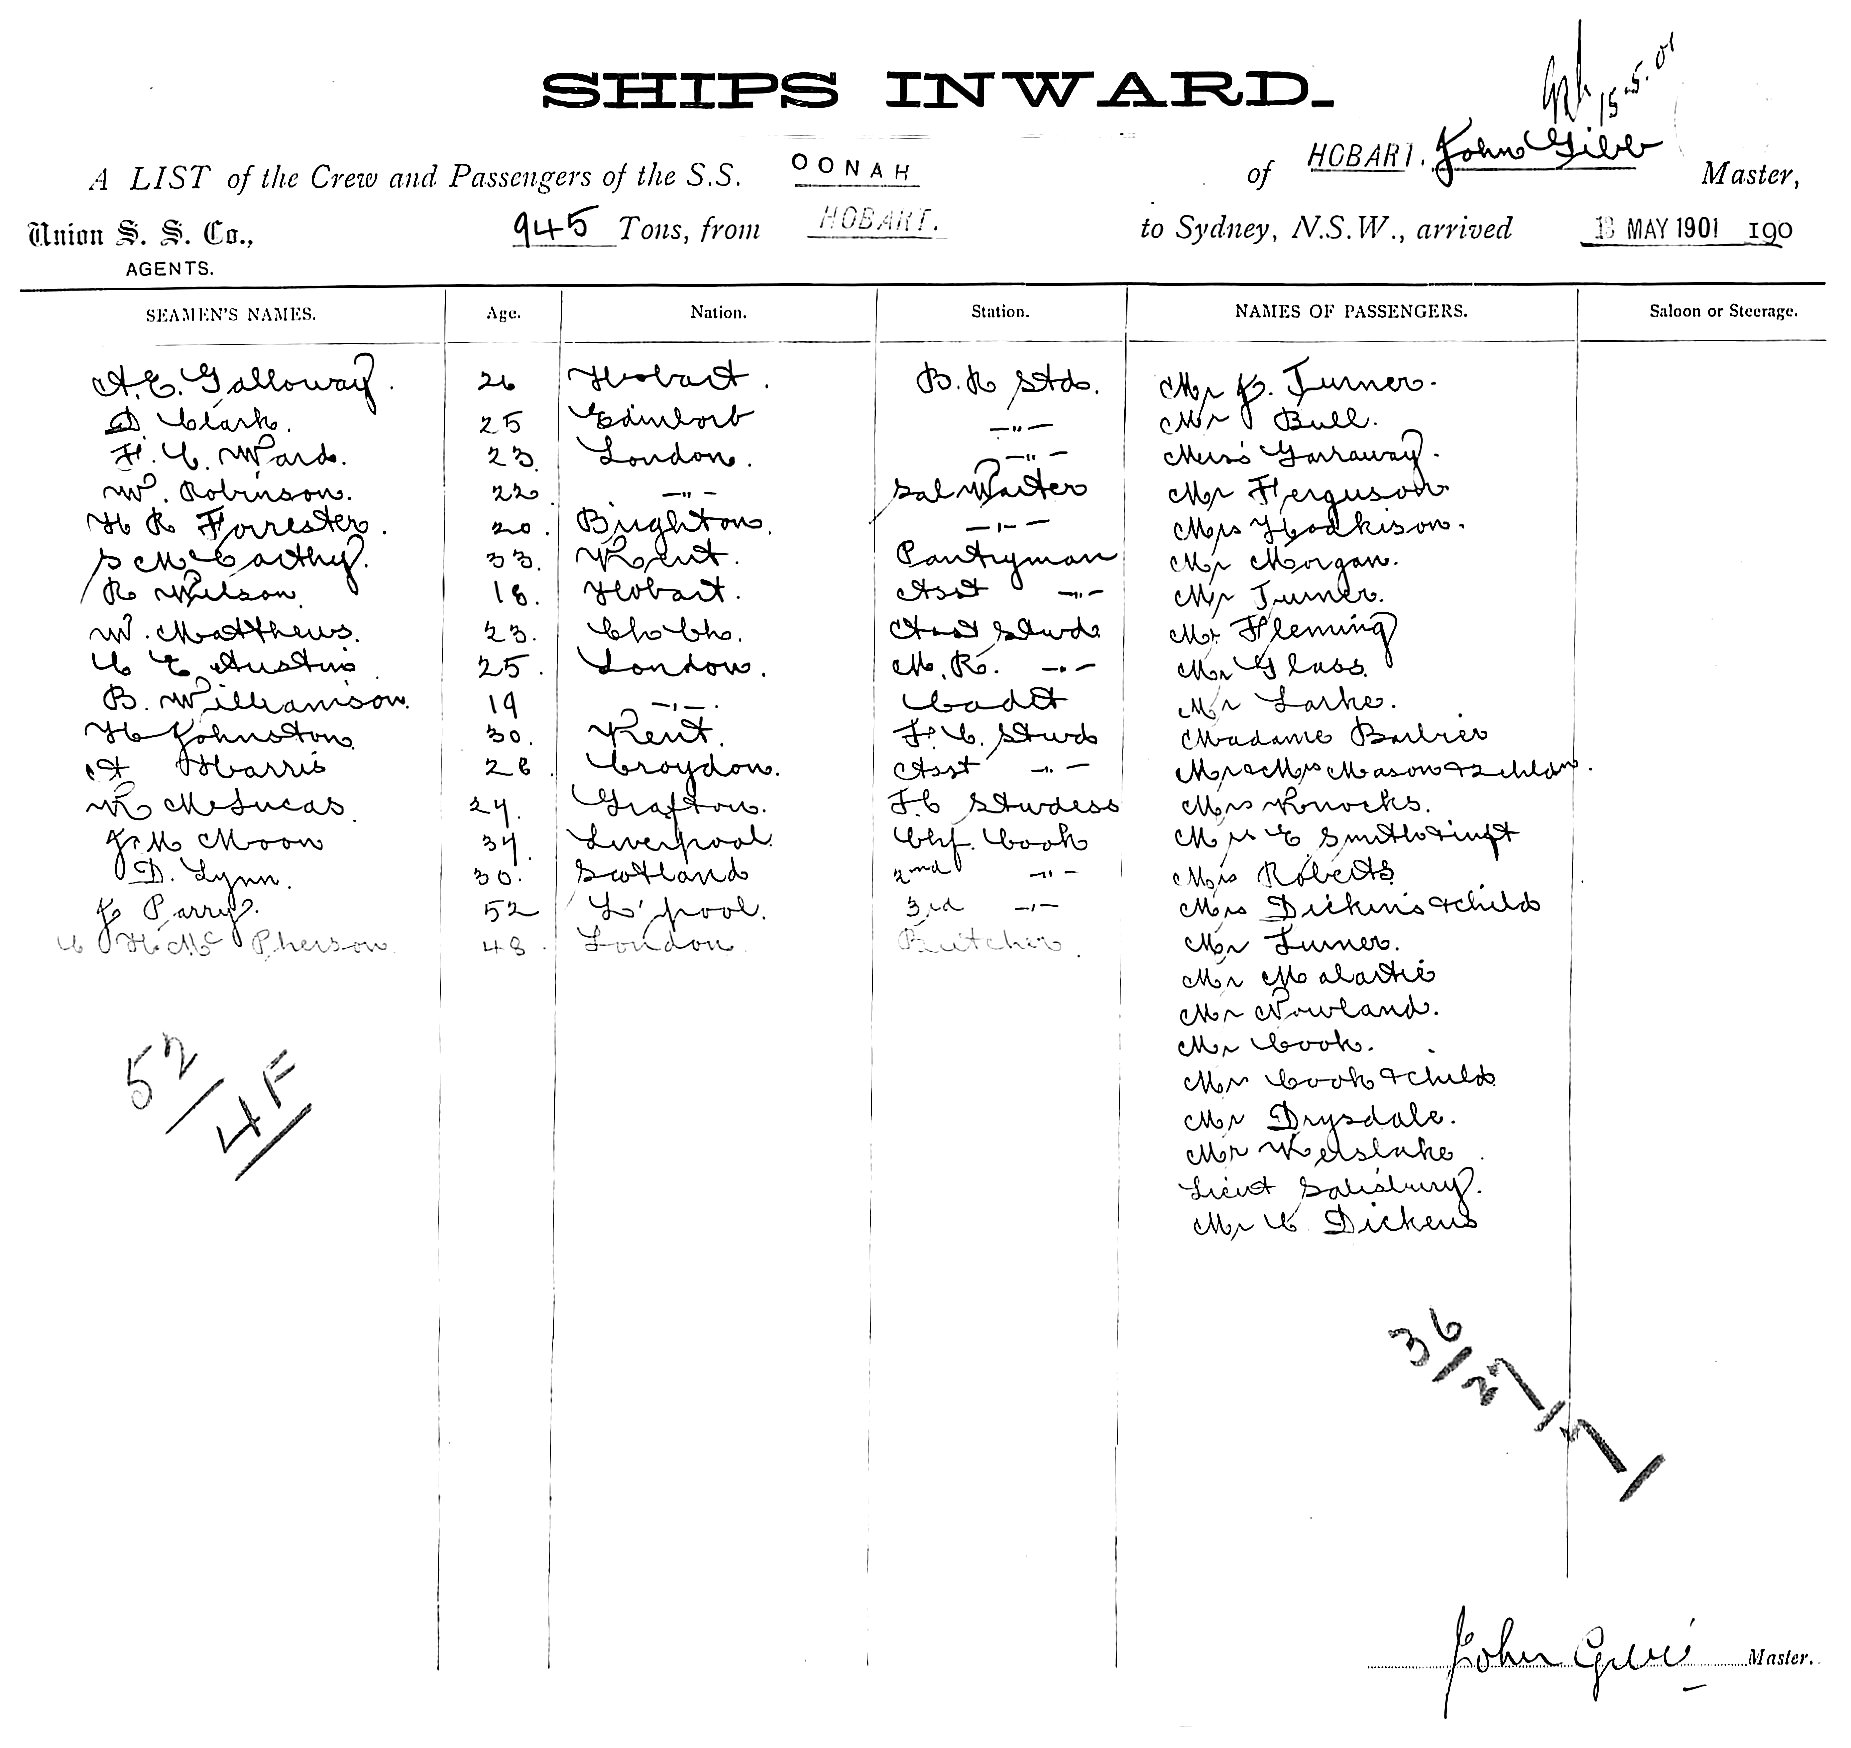 SHIPS INWARD.
15.5.01
A LIST of the Crew and Passengers of the S.S. OONAH of HOBART. John Gibb Master,
Union S. S. Co., 945 Tons, from HOBART. to Sydney, N.S.W., arrived 13 MAY 1901 190
AGENTS.
SEAMEN'S NAMES. Age. Nation. Station. NAMES OF PASSENGERS. Saloon or Steerage.
A. E. Galloway. 26 Hobart. B. R Stds. Mr J. Turner.
D. Clark. 25 Edinboro —"— Mr Bull.
F. C. Ward. 23. London. —"— Miss Garraway.
W. Robinson. 22 —"— Sal Waiter Mr Ferguson
H R Forrester. 20. Brighton. —"— Mrs Hodkison.
S McCarthy. 33. Kent. Pantryman Mr Morgan.
R Wilson 18. Hobart. Asst —"— Mr Turner.
W. Matthews. 23. Ch Ch. Asst Stwd Mr Fleming
C E Austin 25. London. M. R. —"— Mr Glass
B. Williamson. 19 —"—. Cadet Mr Larke.
H Johnston 30. Kent. F. C. Stwd Madame Barbier
A Harris 28. Croydon. Asst —"— Mr & Mrs Mason & 2 childn.
K McLucas 27. Grafton. F. C Stwdess Mrs Knocks.
J. M Moon 37 Liverpool Chf. Cook Mrs E Smith & inft
D. Lynn. 30. Scotland 2nd —"— Mrs Roberts
J Parry. 52 L'pool. 3rd —"— Mrs Dickins & child
C H McPherson 48. London Butcher. Mr Turner.
Mr Malartie
Mr Rowland.
Mr Cook.
Mrs Cook & child
Mr Drysdale.
Mr Kerslake
Lieut Salisbury.
Mr C Dickens
52/
4F
36/27/7/
John Gibb Master.